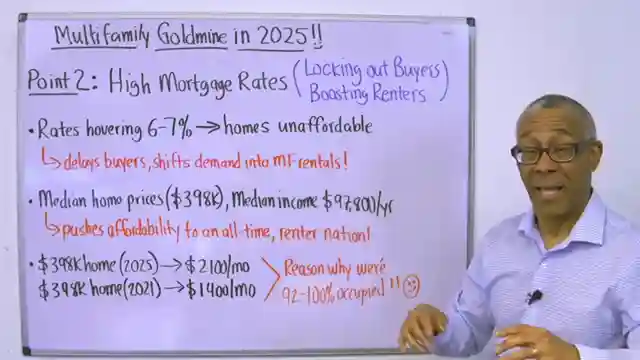 Multifamily Goldmine in 2025!!
Point 2: High Mortgage Rates (Locking out Buyers
Boosting Renters)
• Rates hovering 6-7% → homes unaffordable
↳ delays buyers, shifts demand into MF rentals!
• Median home prices ($398K), Median income $97,800/yr
↳ pushes affordability to an all-time, renter nation!
• $398K home (2025) → $2100/mo
$398K home (2021) → $1400/mo
Reason why we're
92-100% occupied!! ☹